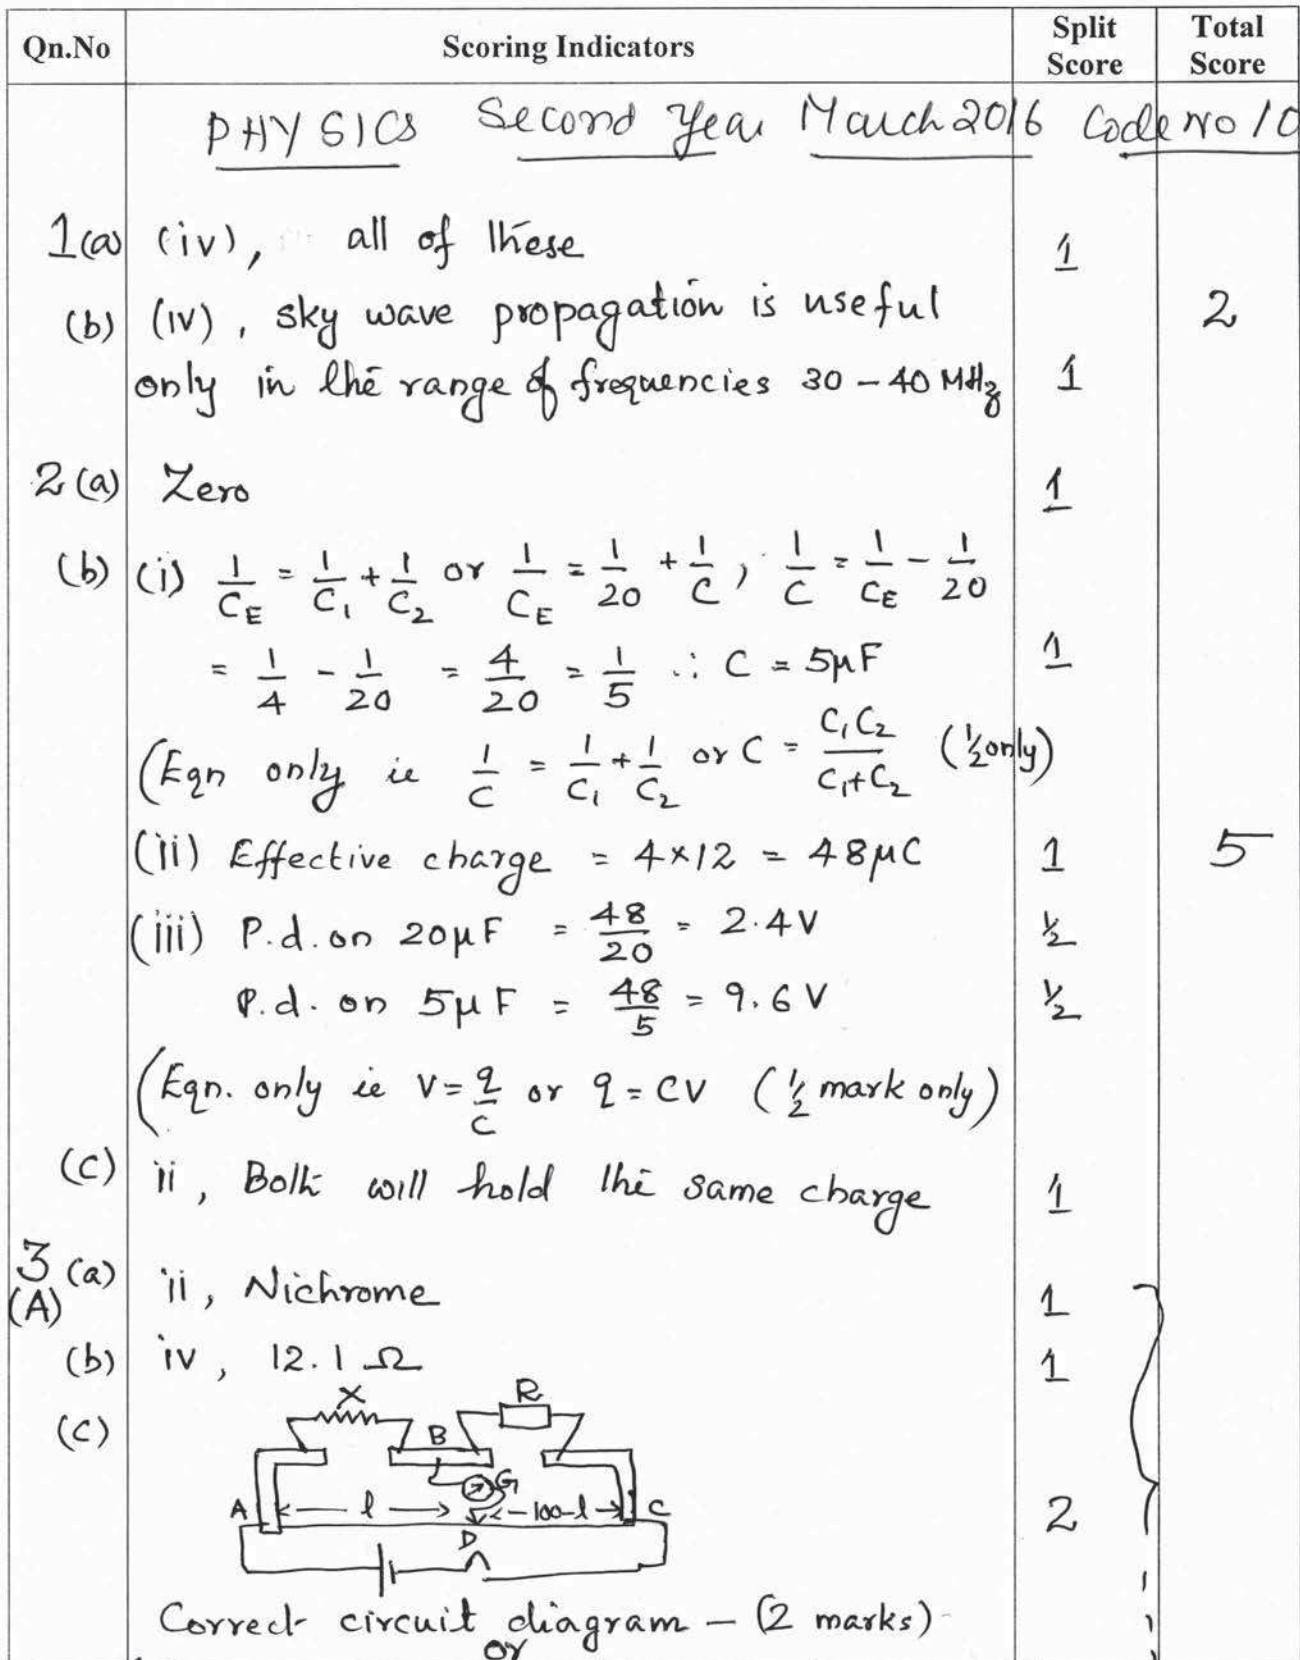 Qn.No Scoring Indicators Split Score Total Score
PHYSICS Second Year March 2016 Code No 10
1(a) (iv), all of these 1
(b) (iv), sky wave propagation is useful 2
only in the range of frequencies 30 – 40 MHz 1
2(a) Zero 1
(b) (i) 1/C_E = 1/C₁ + 1/C₂ or 1/C_E = 1/20 + 1/C, 1/C = 1/C_E − 1/20
= 1/4 − 1/20 = 4/20 = 1/5 ∴ C = 5μF 1
(Eqn only ie 1/C = 1/C₁ + 1/C₂ or C = C₁C₂/C₁+C₂ (½ only)
(ii) Effective charge = 4×12 = 48μC 1 5
(iii) P.d. on 20μF = 48/20 = 2.4V ½
P.d. on 5μF = 48/5 = 9.6V ½
(Eqn. only ie V = q/C or q = CV (½ mark only)
(c) ii, Both will hold the same charge 1
3 (a) ii, Nichrome 1
(A)
(b) iv, 12.1 Ω 1
(c) X R
B
G
A l 100-l C 2
D
Correct circuit diagram – (2 marks)
or